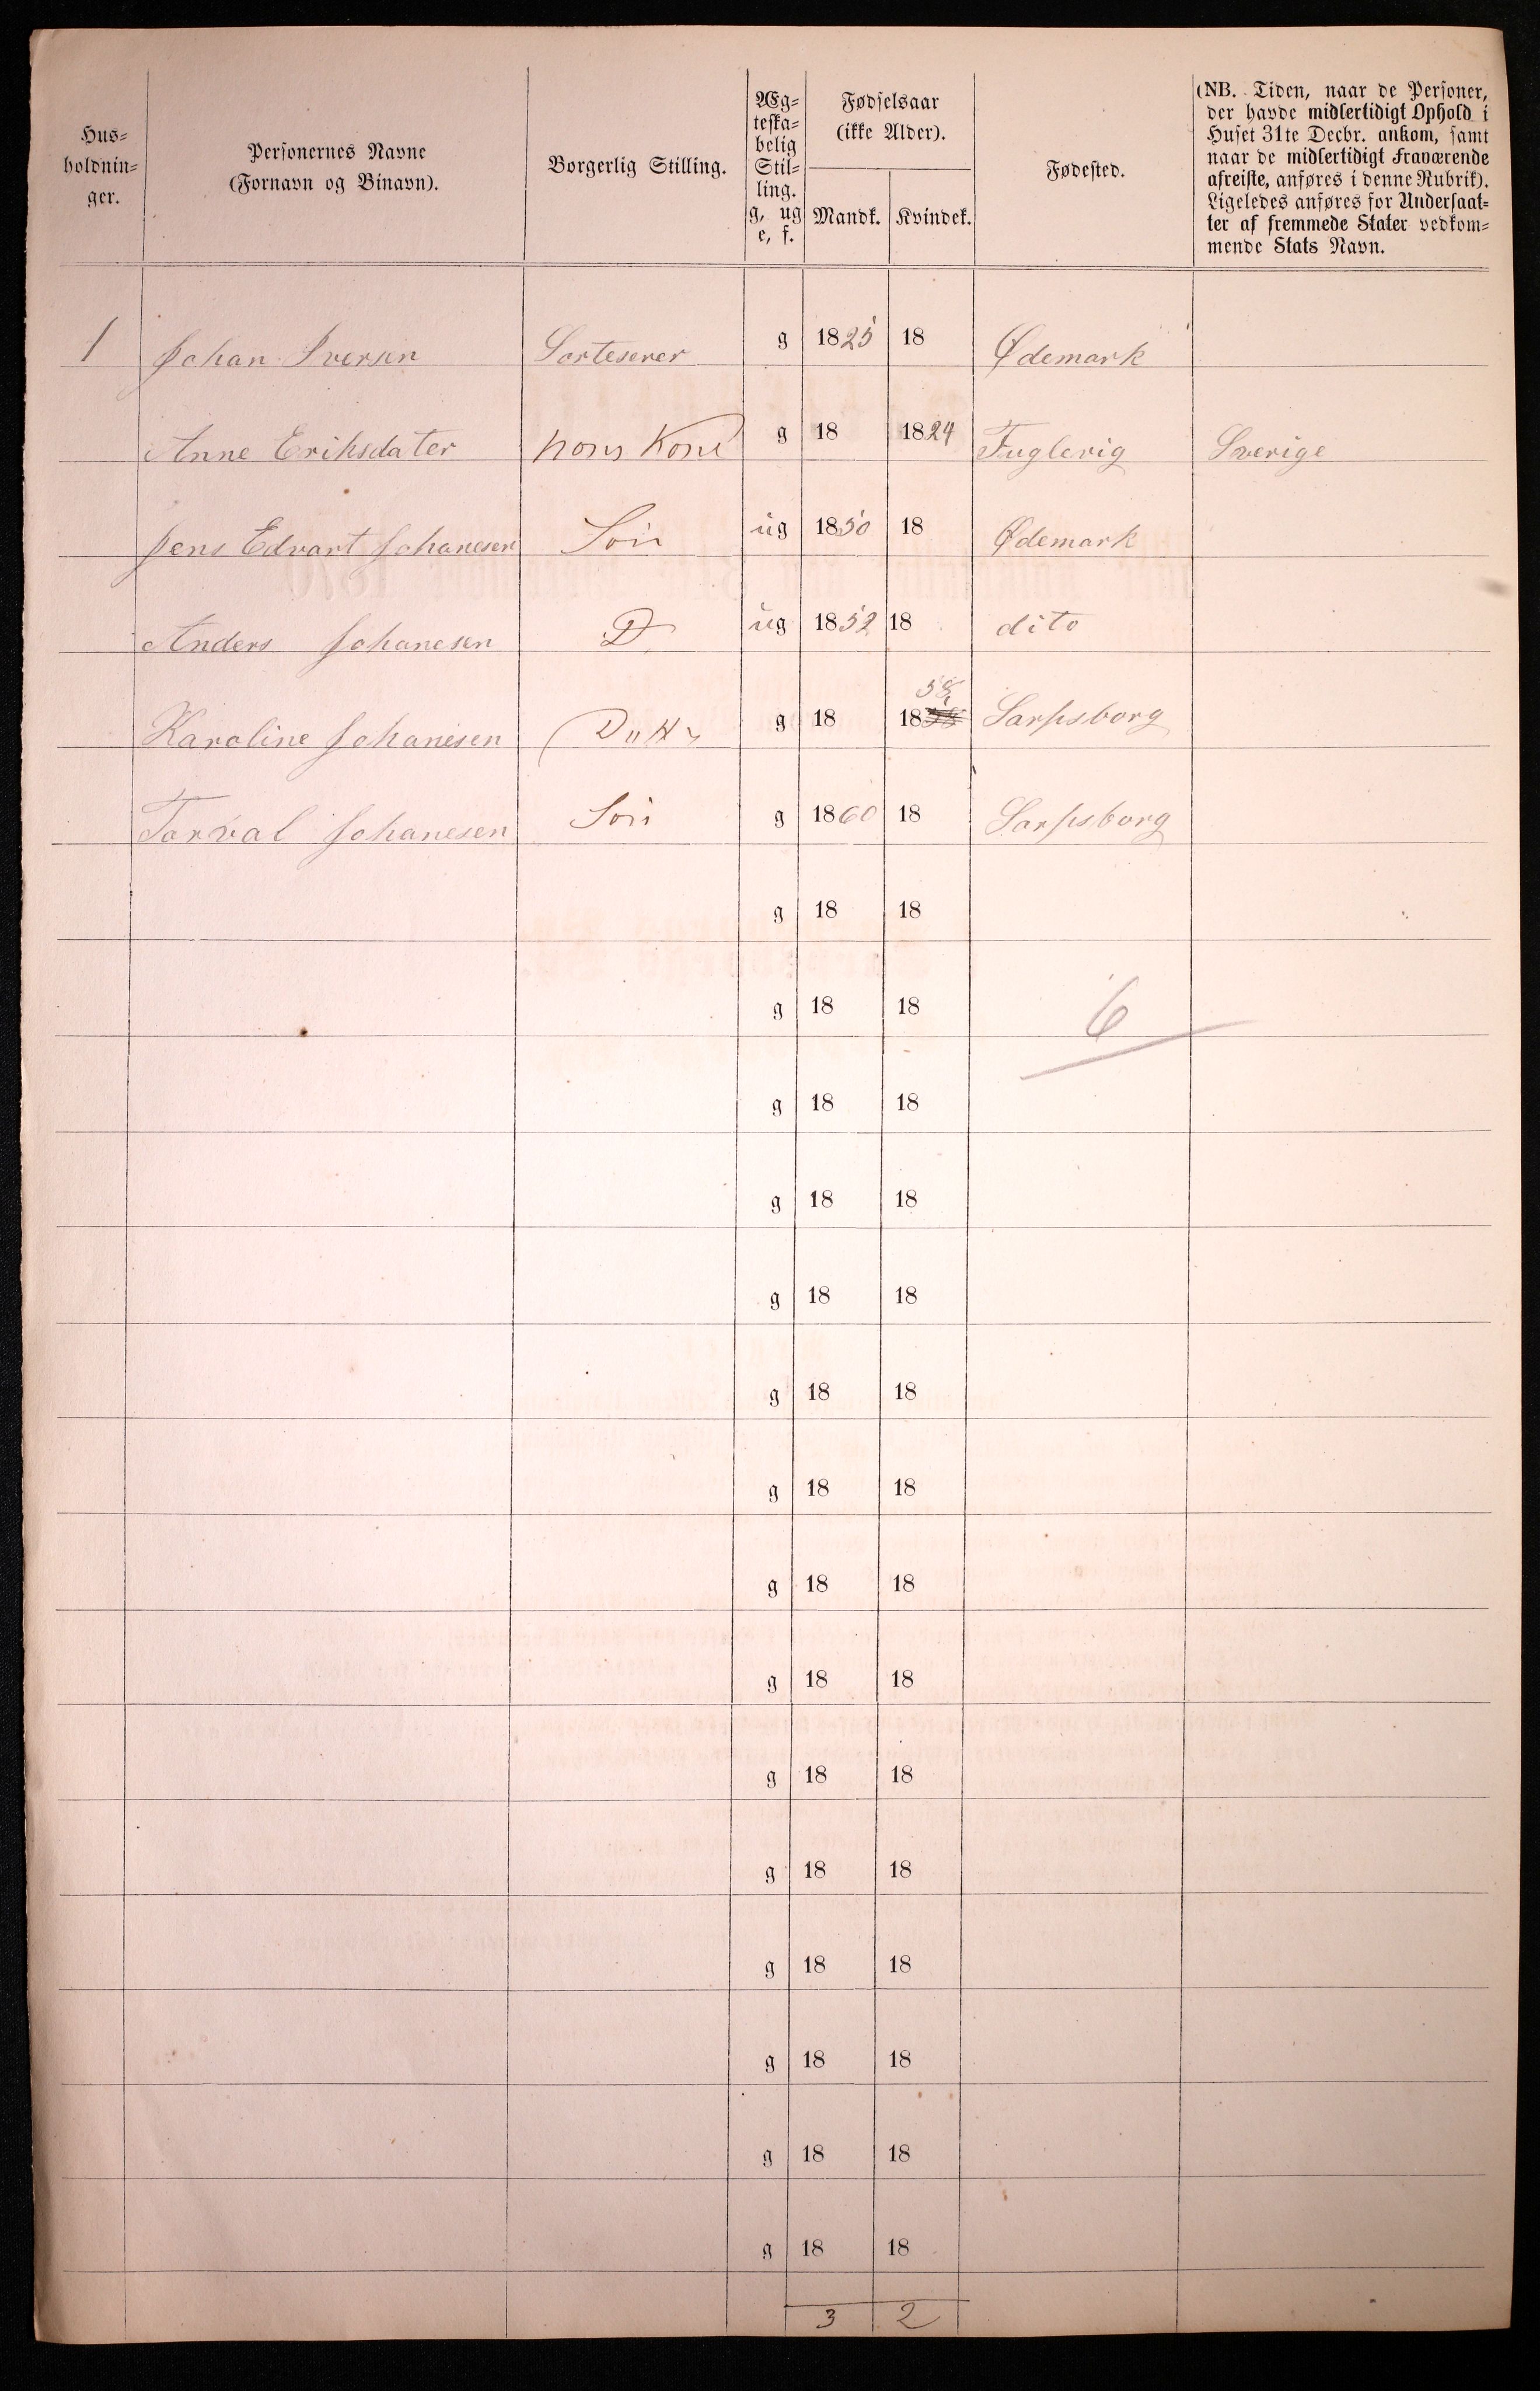 Hus-
holdnin-
ger.
Personernes Navne
(Fornavn og Binavn).
Borgerlig Stilling.
Æg-
teska-
belig
Stil-
ling.
g, ug
e, f.
Fødselsaar
(ikke Alder).
Mandk. Kvindek.
Fødested.
(NB. Tiden, naar de Personer,
der havde midlertidigt Ophold i
Huset 31te Decbr. ankom, samt
naar de midlertidigt Fraværende
afreiste, anføres i denne Rubrik).
Ligeledes anføres for Undersaat-
ter af fremmede Stater vedkom-
mende Stats Navn.
1 Johan Iversen Sorteserer g 1825 18 Ødemark
Anne Eriksdater hans Kone g 18 1824 Fuglevig Sverige
Jens Edvart Johanesen Søn ug 1850 18 Ødemark
Anders Johanesen D ug 1852 18 dito
58
Karoline Johanesen Datt g 18 18 Sarpsborg
Torval Johanesen Søn g 1860 18 Sarpsborg
g 18 18
g 18 18 6
g 18 18
g 18 18
g 18 18
g 18 18
g 18 18
g 18 18
g 18 18
g 18 18
g 18 18
g 18 18
g 18 18
g 18 18
g 18 18
3 2